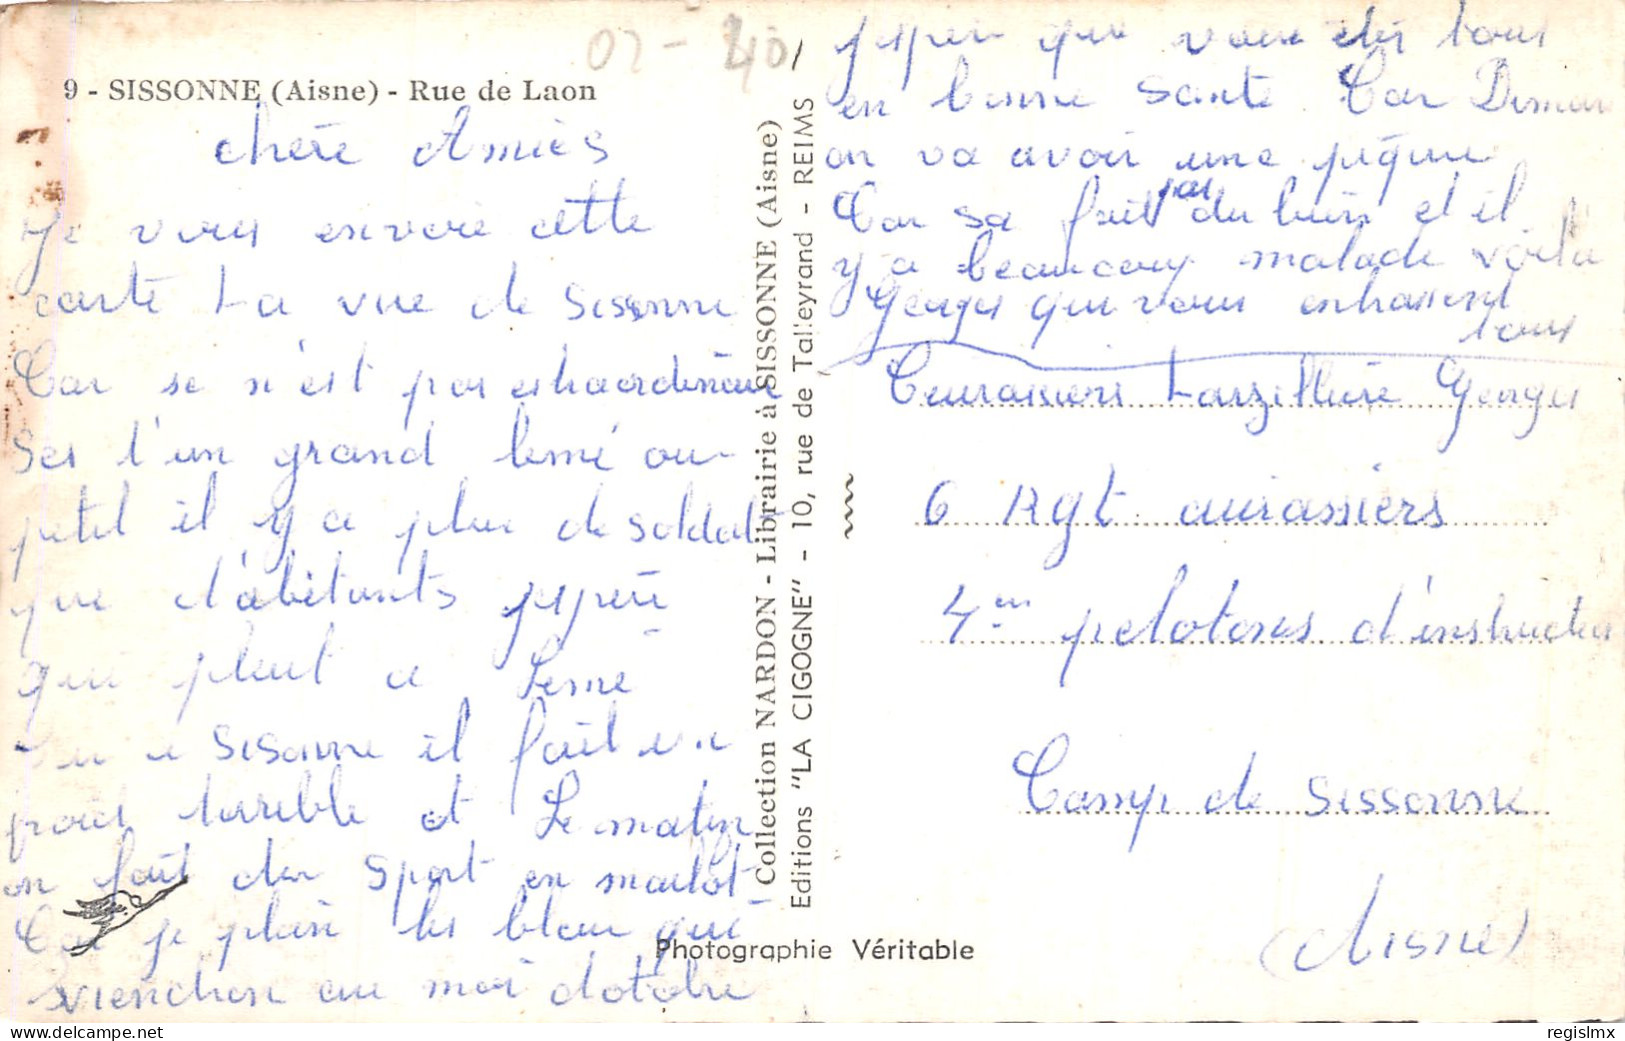 02-40
9 - SISSONNE (Aisne) - Rue de Laon
chère Amies
Je vous envoie cette
carte La vue de Sissonne
Car se n'est pas
Ses l'un grand Lemé ou
petit il y a plus de soldat
que d'abitants jesper
que pleut a Lemé
a Sisonne il fait
terrible et Le matin
on fait du Sport en maillot
Car je plain les bleu qui
viendron au moi dotobre
jesper que vous etes tous
en bonne Santé Car Diman
on va avoir une piqure
Car sa fait pas du bien et il
y a beaucoup malade voila
Georges qui vous enbrassent
tous
Cuirassiers Larzilliere Georges
6 Rgt cuirassiers
4em pelotons d'instruction
Camp de Sissonne
(Aisne)
Collection NARDON - Librairie à SISSONNE (Aisne)
Editions "LA CIGOGNE" - 10, rue de Talleyrand - REIMS
Photographie Véritable
regislmx